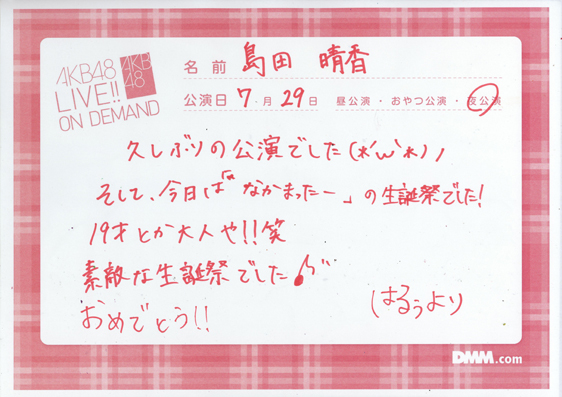 AKB48
LIVE!!
ON DEMAND
AKB48
名前 島田 晴香
公演日 7月29日 昼公演・おやつ公演・夜公演
久しぶりの公演でした(*´ω`*)ノ
そして、今日は「なかまったー」の生誕祭でした!
19才とか大人や!!笑
素敵な生誕祭でした♪
おめでとう!!
はるぅより
DMM.com